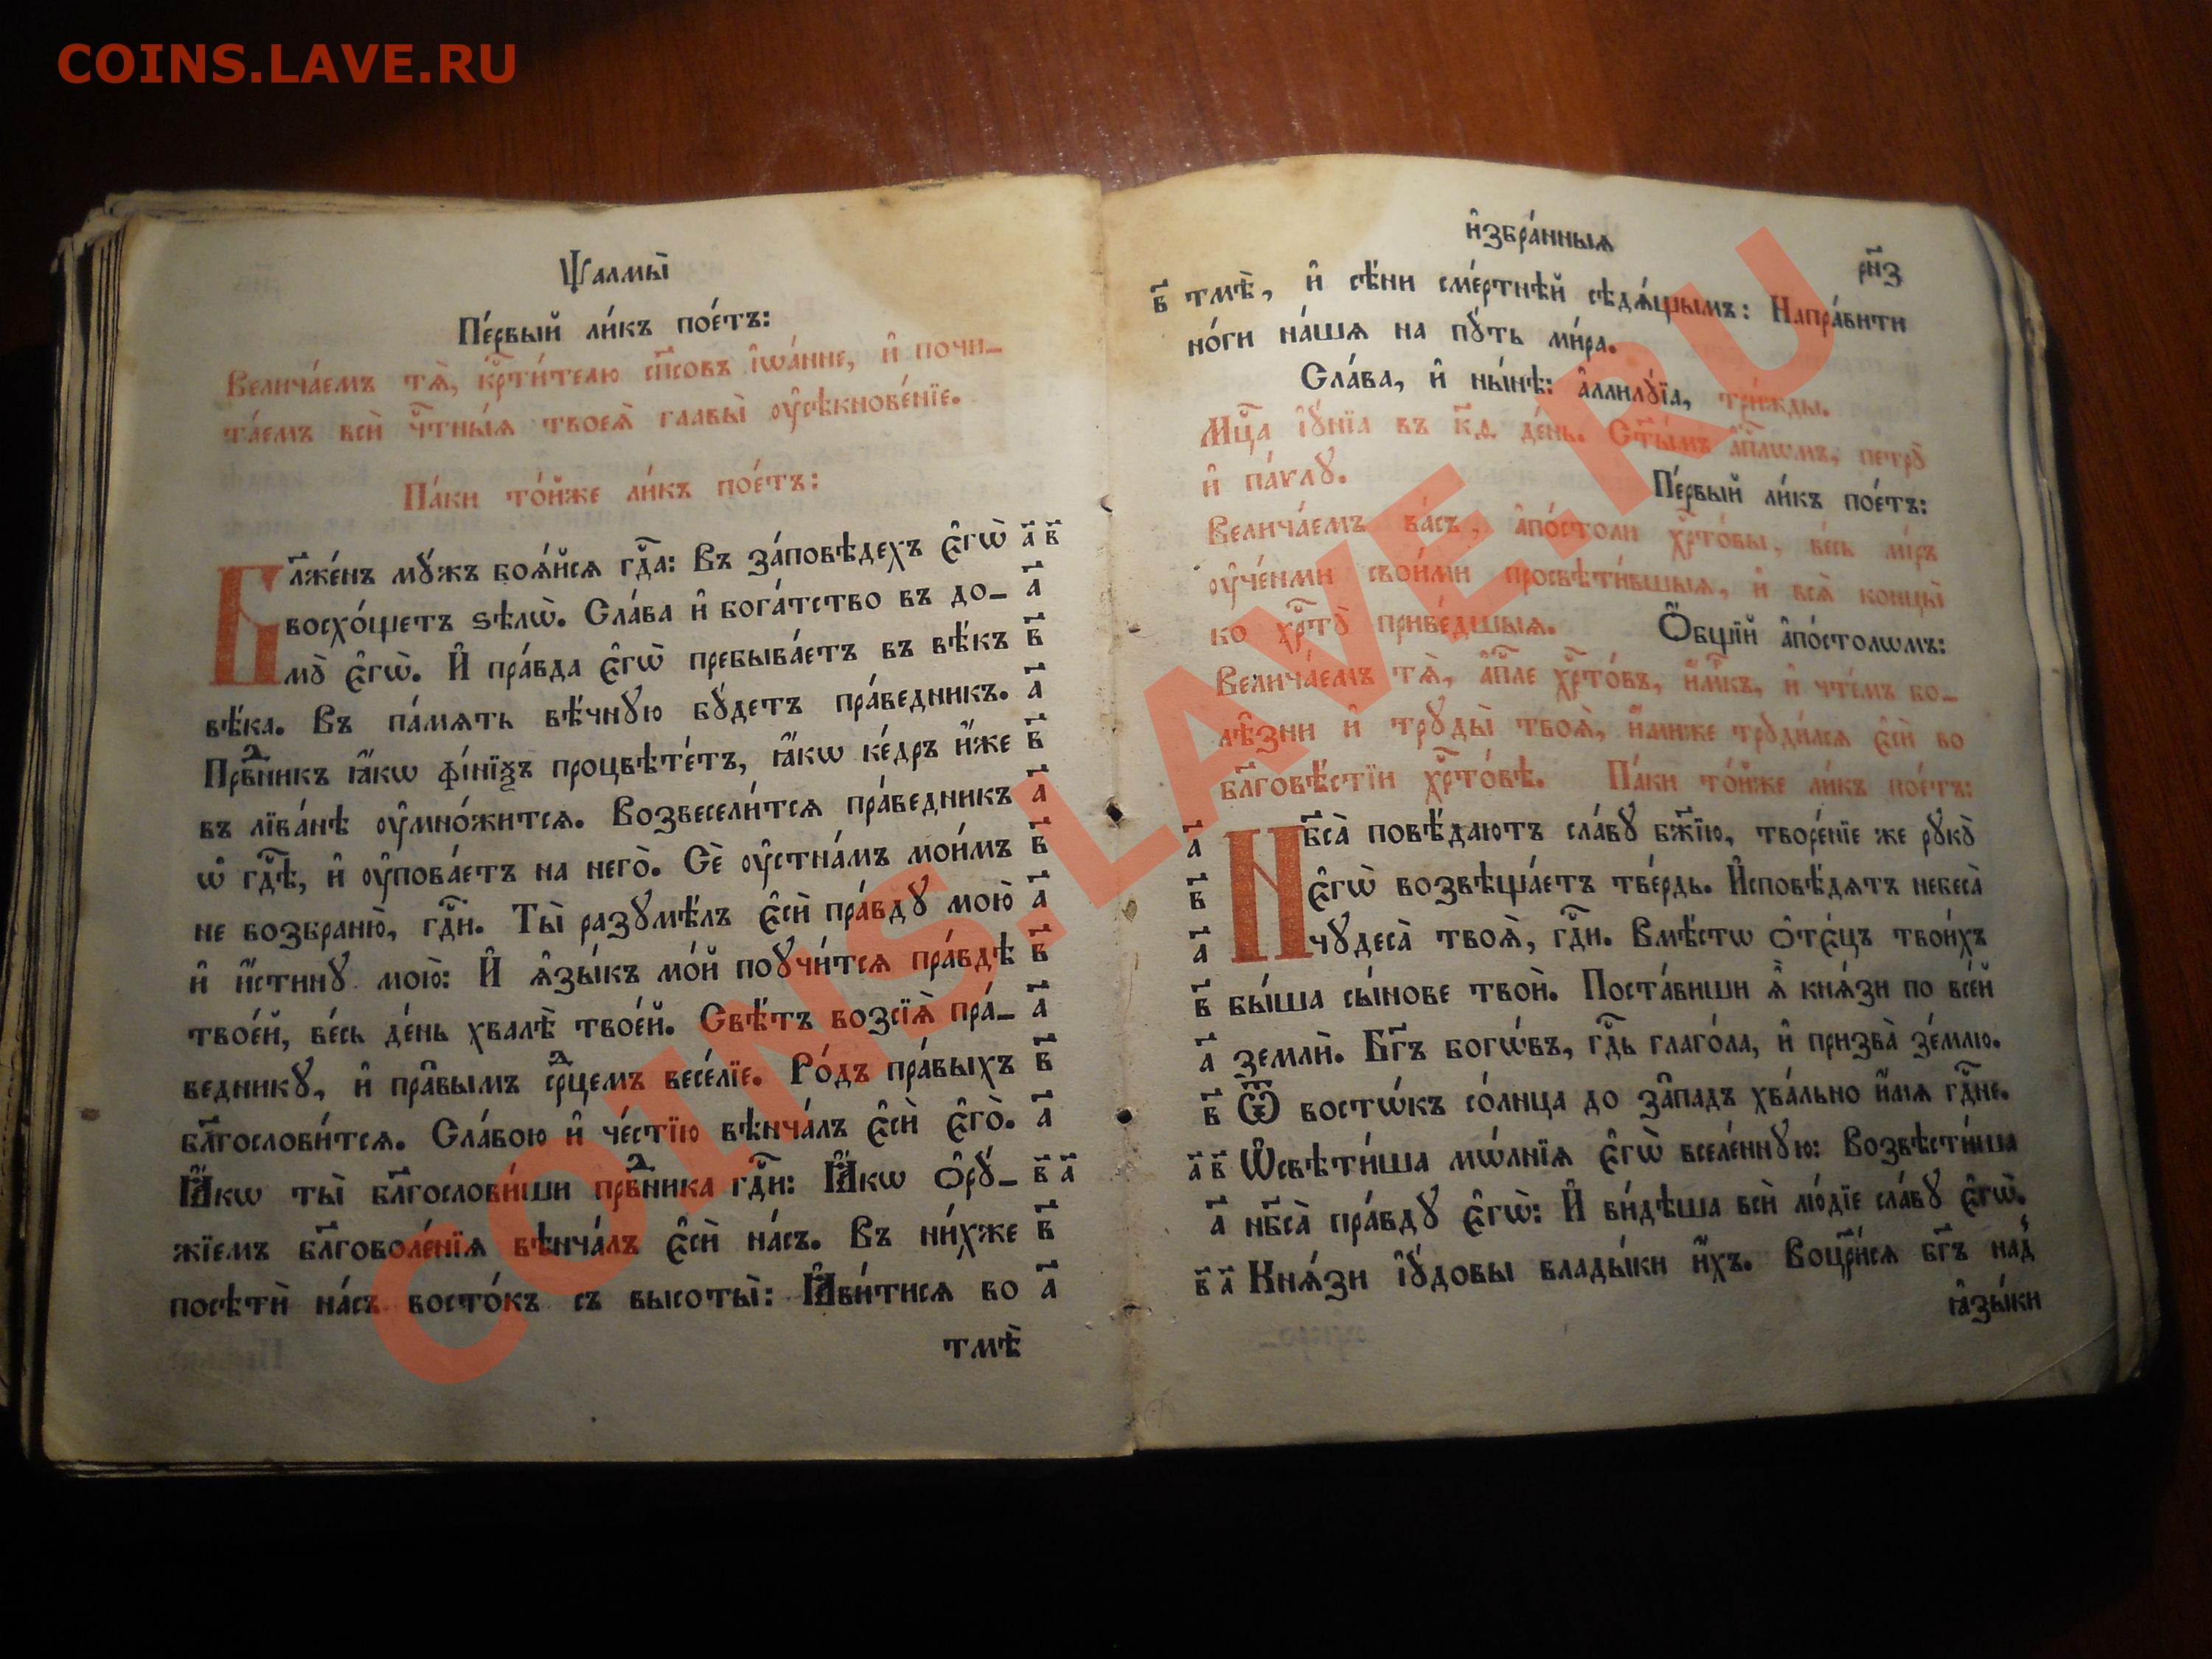 COINS.LAVE.RU
Ѱалмы̀
Пе́рвый ли́къ пое́тъ:
Велича́емъ тѧ̀, кр҃ти́телю сп҃совъ і҆ѡа́нне, и҆ почи-
та́емъ всѝ чⷭ҇тны́ѧ твоеѧ̀ главы̀ ᲂу҆сѣкнове́нїе.
Па́ки то́йже ли́къ пое́тъ:
Бл҃же́нъ мꙋ́жъ боѧ́йсѧ гдⷭ҇а: Въ за́повѣдехъ є҆гѡ̀ а҃ в҃
восхо́щетъ ѕѣлѡ̀. Сла́ва и҆ бога́тство въ до- а҃
мꙋ̀ є҆гѡ̀. И҆ пра́вда є҆гѡ̀ пребыва́етъ въ вѣ́къ в҃
вѣ́ка. Въ па́мѧть вѣ́чнꙋю бꙋ́детъ пра́ведникъ. а҃
Првⷣникъ ꙗ҆́кѡ фі́нїѯъ процвѣте́тъ, ꙗ҆́кѡ ке́дръ и҆́же в҃
въ лїва́нѣ ᲂу҆мно́житсѧ. Возвесели́тсѧ пра́ведникъ а҃
ѡ҆ гдⷭ҇ѣ, и҆ ᲂу҆пова́етъ на него̀. Сѐ ᲂу҆стна́мъ мои́мъ в҃
не возбраню̀, гдⷭ҇и. Ты̀ разꙋмѣ́лъ є҆сѝ пра́вдꙋ мою̀ а҃
и҆ и҆́стинꙋ мою̀: И҆ ѧ҆зы́къ мо́й поꙋчи́тсѧ пра́вдѣ в҃
твое́й, ве́сь де́нь хвалѣ̀ твое́й. Свѣ́тъ возсїѧ̀ пра́- а҃
ведникꙋ, и҆ пра̑вымъ срⷣцемъ весе́лїе. Ро́дъ пра́выхъ в҃
бл҃гослови́тсѧ. Сла́вою и҆ че́стїю вѣнча́лъ є҆сѝ є҆го̀. а҃
Ꙗ҆́кѡ ты̀ бл҃гослови́ши првⷣника гдⷭ҇и: Ꙗ҆́кѡ ѻ҆рꙋ́- в҃ а҃
жїемъ бл҃говоле́нїѧ вѣнча́лъ є҆сѝ на́съ. Въ ни́хже в҃
посѣтѝ на́съ восто́къ съ высоты̀: Ꙗ҆ви́тисѧ во а҃
тмѣ̀
и҆збра́нныѧ
рн҃з
в҃ тмѣ̀, и҆ сѣ́ни сме́ртнѣй сѣдѧ́щымъ: Напра́вити
но́ги на́шѧ на пꙋ́ть ми́ра.
Сла́ва, и҆ ны́нѣ: а҆ллилꙋ́їа, три́жды.
Мцⷭ҇а і҆ꙋ́нїа въ к҃ѳ де́нь. Ст҃ы́мъ а҆пⷭ҇лѡмъ, петрꙋ̀
и҆ па́ѵлꙋ.
Пе́рвый ли́къ пое́тъ:
Велича́емъ ва́съ, а҆по́столи хрⷭ҇то́вы, ве́сь мі́ръ
ᲂу҆че́ньми свои́ми просвѣти́вшыѧ, и҆ всѧ̀ концы̀
ко хрⷭ҇тꙋ̀ приве́дшыѧ. Ѻ҆́бщїй а҆по́столѡмъ:
Велича́емъ тѧ̀, а҆пⷭ҇ле хрⷭ҇то́въ, и҆м҃къ, и҆ чте́мъ бо-
лѣ̑зни и҆ трꙋды̀ твоѧ̀, и҆́миже трꙋди́лсѧ є҆сѝ во
бл҃говѣ́стїи хрⷭ҇то́вѣ. Па́ки то́йже ли́къ пое́тъ:
а҃ Нб҃са̀ повѣ́даютъ сла́вꙋ бж҃їю, творе́нїе же рꙋкꙋ̀
в҃ є҆гѡ̀ возвѣща́етъ тве́рдь. И҆сповѣ́дѧтъ небеса̀
а҃ чꙋдеса̀ твоѧ̀, гдⷭ҇и. Вмѣ́стѡ ѻ҆тє́цъ твои́хъ
в҃ бы́ша сы́нове твоѝ. Поста́виши ѧ҆̀ кнѧ́зи по все́й
а҃ землѝ. Бг҃ъ богѡ́въ, гдⷭ҇ь глаго́ла, и҆ призва̀ зе́млю.
в҃ Ѿ востѡ́къ со́лнца до за̑падъ хва́льно и҆́мѧ гдⷭ҇не.
а҃ в҃ Ѡ҆свѣти́ша мѡ́лнїѧ є҆гѡ̀ вселе́ннꙋю: Возвѣсти́ша
а҃ нб҃са̀ пра́вдꙋ є҆гѡ̀: И҆ ви́дѣша всѝ лю́дїе сла́вꙋ є҆гѡ̀.
в҃ а҃ Кнѧ́зи і҆ꙋ́довы влады́ки и҆́хъ. Воцр҃и́сѧ бг҃ъ над̾
ꙗ҆зы́ки
COINS.LAVE.RU